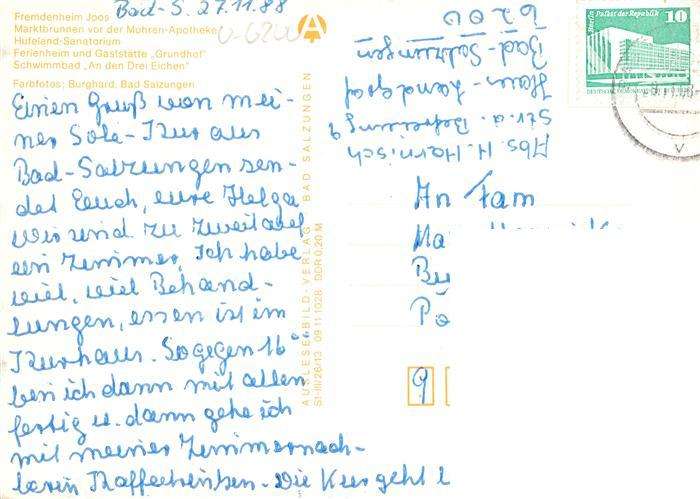 Bad-S. 27.11.88
Fremdenheim Joos
Marktbrunnen vor der Mohren-Apotheke
Hufeland-Sanatorium
Ferienheim und Gaststätte „Grundhof"
Schwimmbad „An den Drei Eichen"
Farbfotos: Burghard, Bad Salzungen
Einen Gruß von mei-
ner Sole-Kur aus
Bad-Salzungen sen-
det Euch, eure Helga
Wir sind zu zweit auf
ein Zimmer. Ich habe
viel, viel Behand-
lungen, essen ist im
Kurhaus. So gegen 16°°
bin ich dann mit allem
fertig u. dann gehe ich
mit meiner Zimmernach-
barin Kaffeetrinken. Die Kur geht
AUSLESE-BILD-VERLAG BAD SALZUNGEN
09 11 1028 DDR 0,20 M
A
Abs. H. Harnisch
Str. d. Befreiung 9
Haus-Landgraf
Bad-Salzungen
6200
Palast der Republik
10
An Fam
Ma
Bu
Pö
9